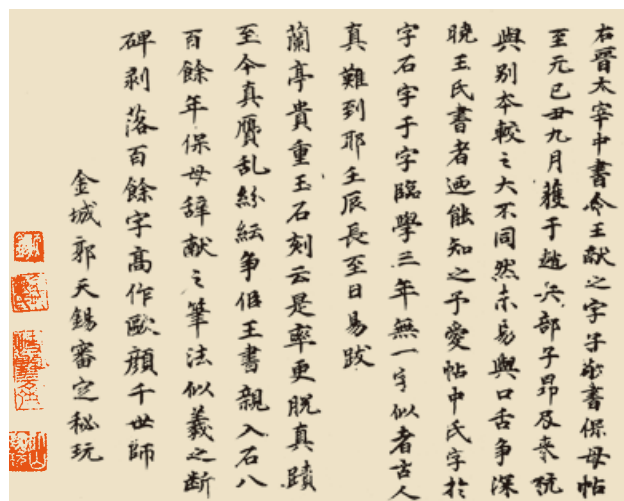 右晉太宰中書令王獻之字子敬書保母帖
至元己丑九月獲于趙兵部子昂及來杭
與別本較之大不同然未易與口舌爭深
曉王氏書者迺能知之予愛帖中氏字於
字石字于字臨學三年無一字似者古人
真難到耶壬辰長至日易跋
蘭亭貴重玉石刻云是率更脫真蹟
至今真贗乱絲紜争似王書親入石八
百餘年保母辞献之筆法似羲之断
碑剥落百餘字髙作歐顔千世師
金城郭天錫審定秘玩